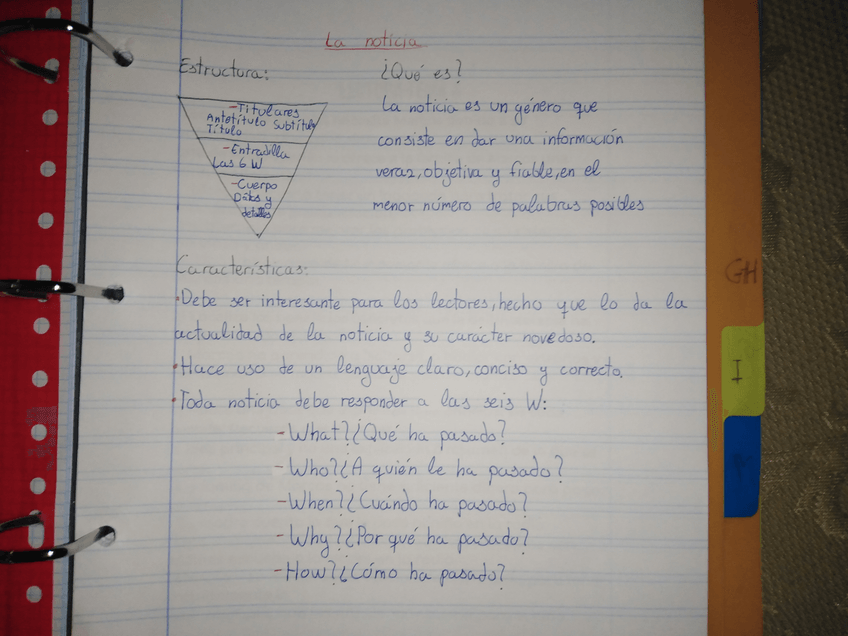 La noticia
Estructura:
-Titulares
Antetítulo Subtítulo
Título
-Entradilla
Las 6 W
-Cuerpo
Datos y
detalles
¿Qué es?
La noticia es un género que
consiste en dar una información
veraz, objetiva y fiable, en el
menor número de palabras posibles
Características:
·Debe ser interesante para los lectores, hecho que lo da la
actualidad de la noticia y su carácter novedoso.
·Hace uso de un lenguaje claro, conciso y correcto.
·Toda noticia debe responder a las seis W:
-What? ¿Qué ha pasado?
-Who? ¿A quién le ha pasado?
-When? ¿Cuándo ha pasado?
-Why? ¿Por qué ha pasado?
-How? ¿Cómo ha pasado?
GH
I